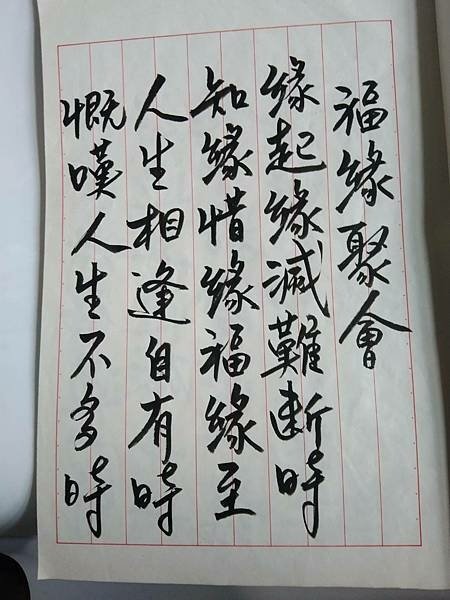 福緣聚會
緣起緣滅難斷時
知緣惜緣福緣至
人生相逢自有時
慨嘆人生不多時